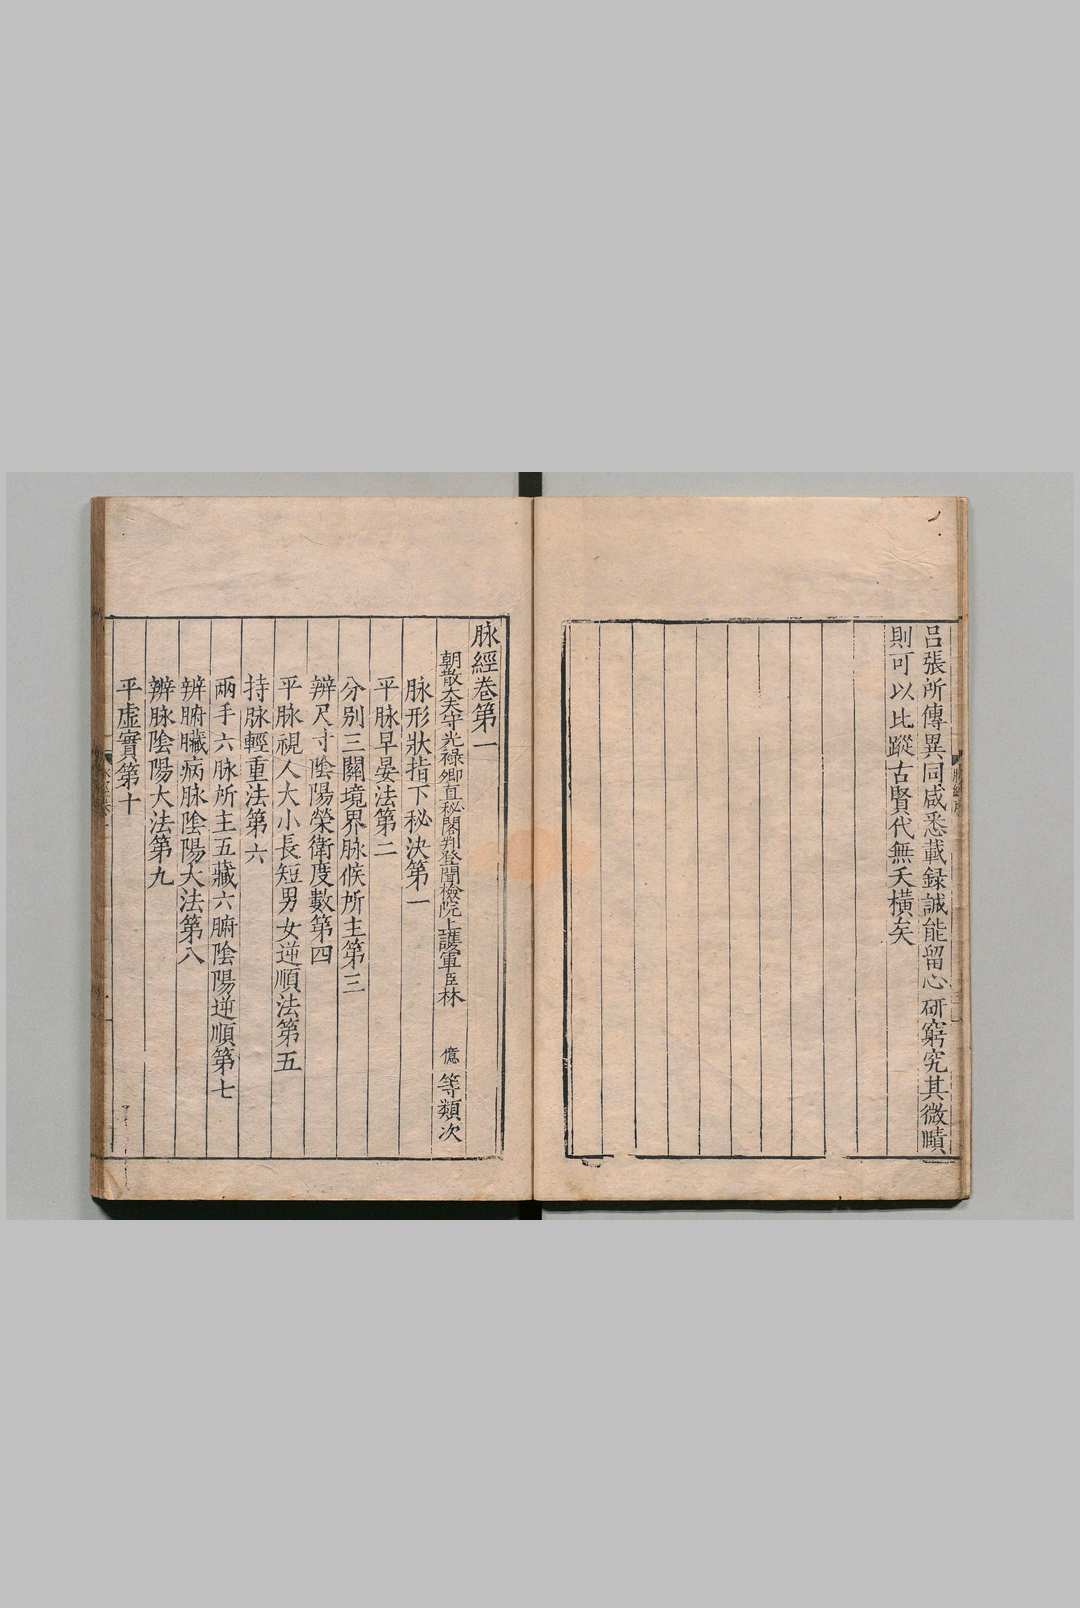 呂張所傳異同咸悉載録誠能留心研窮究其微賾
則可以比蹤古賢代無夭橫矣
脉經卷第一
朝散大夫守光禄卿直秘閣判登聞檢院上護軍臣林億等類次
脉形狀指下秘決第一
平脉早晏法第二
分别三關境界脉候所主第三
辨尺寸陰陽榮衛度數第四
平脉視人大小長短男女逆順法第五
持脉輕重法第六
兩手六脉所主五藏六腑陰陽逆順第七
辨腑臓病脉陰陽大法第八
辨脉陰陽大法第九
平虚實第十